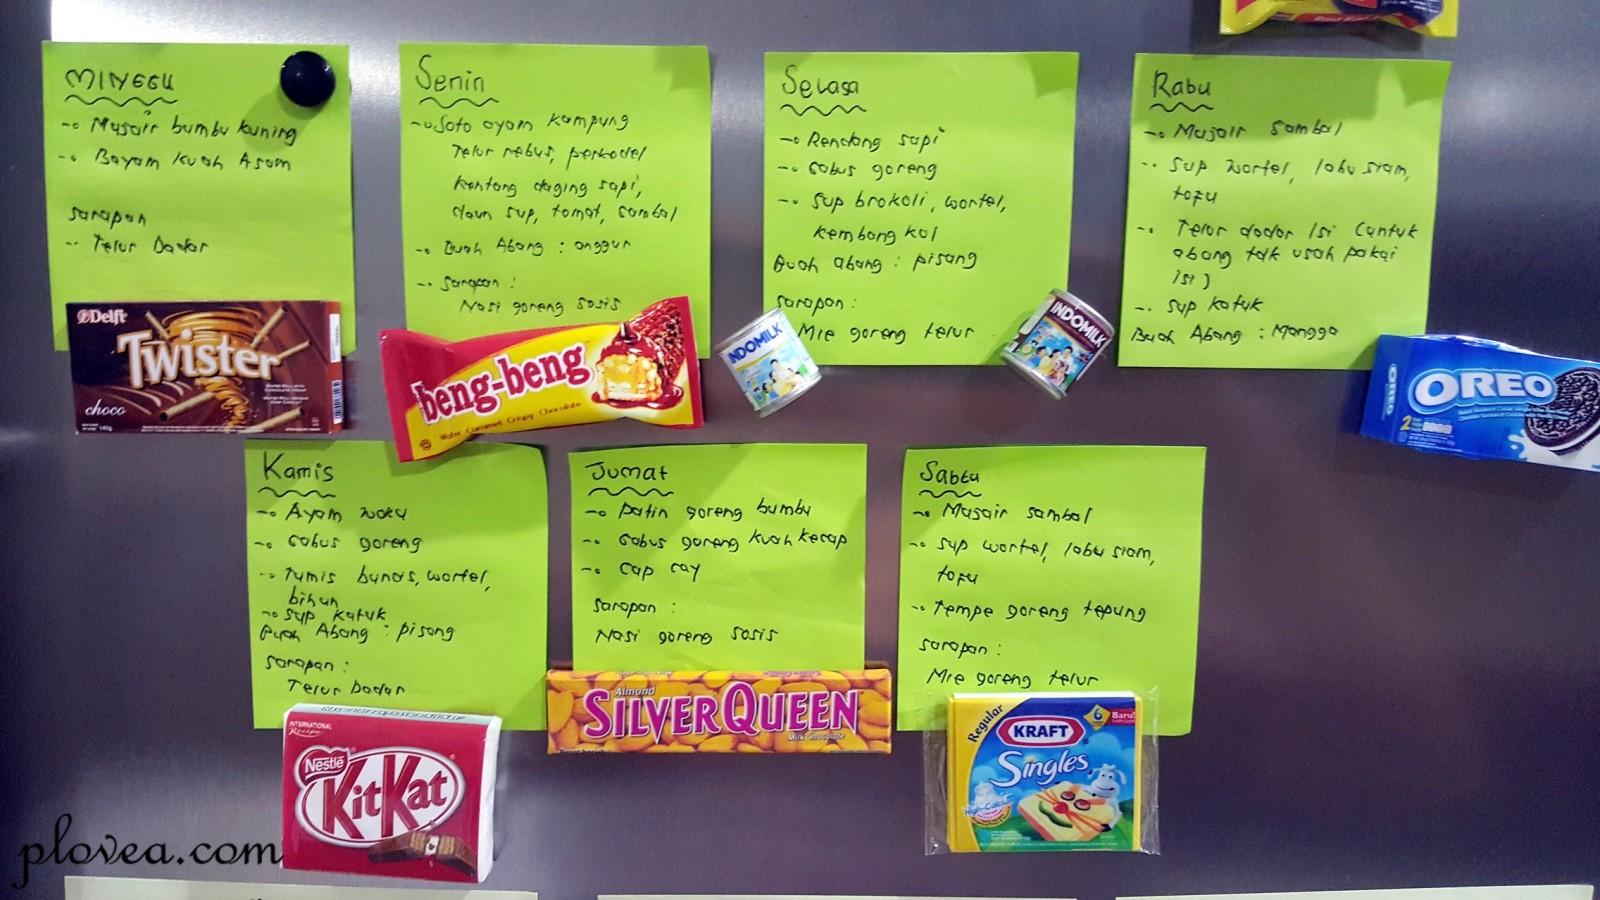 MINGGU
-• Mujair bumbu kuning
-• Bayam kuah Asam
sarapan
-• Telur Dadar
Delft
Twister
choco
Senin
-• Soto ayam kampung
Telur rebus, perkedel
kentang daging sapi,
daun sup, tomat, sambal
-• Buah Abang : anggur
-• sarapan :
Nasi goreng sosis
beng-beng
Wafer Caramel Crispy Chocolate
Selasa
-• Rendang sapi
-• Gabus goreng
-• Sup brokoli, wortel,
kembang kol
Buah abang : pisang
sarapan :
Mie goreng telur
INDOMILK
INDOMILK
Rabu
-• Mujair sambal
-• Sup wortel, labu siam,
tofu
-• Telur dadar Isi (untuk
abang tdk usah pakai
isi)
-• sup katuk
Buah Abang : Mangga
OREO
OREO
2
Kamis
-• Ayam woku
-• Gabus goreng
-• Tumis buncis, wortel,
bihun
-• sup katuk
Buah Abang : pisang
sarapan :
Telur Dadar
INTERNATIONAL
Recipe
Nestle
KitKat
Jumat
-• patin goreng bumbu
-• Gabus goreng kuah kecap
-• cap cay
sarapan :
Nasi goreng sosis
Almond
SILVERQUEEN
Milk Chocolate
Sabtu
-• Mujair sambal
-• sup wortel, labu siam,
tofu
-• Tempe goreng tepung
sarapan :
Mie goreng telur
Regular
KRAFT
6
Baru!
Singles
High-Calcium
plovea.com